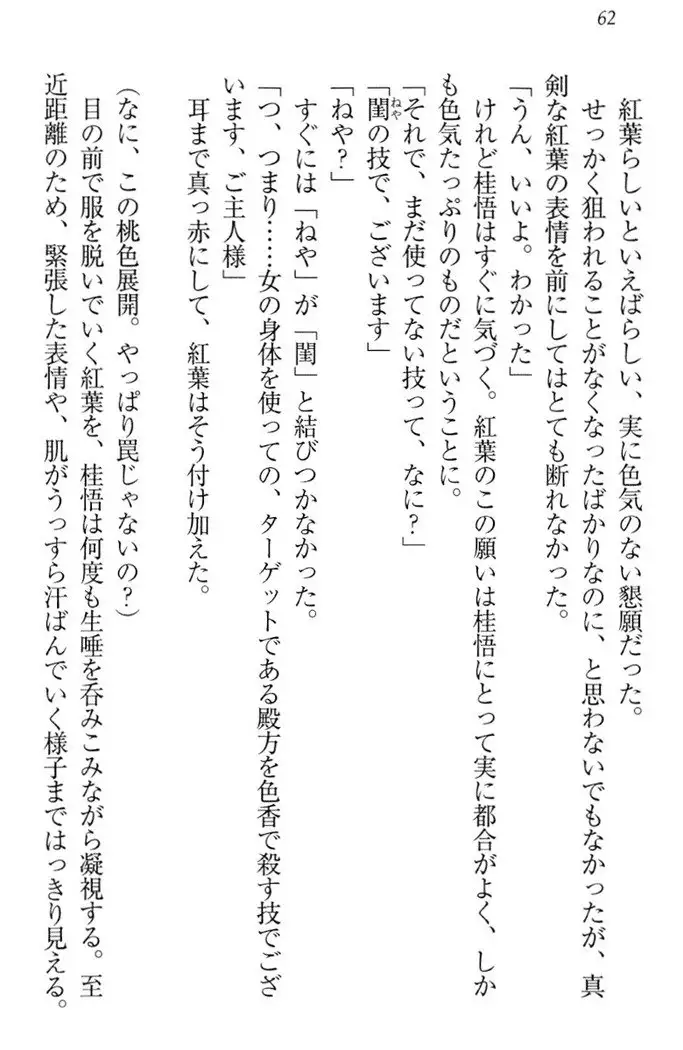 62
紅葉らしいといえばらしい、実に色気のない懇願だった。
せっかく狙われることがなくなったばかりなのに、と思わないでもなかったが、真
剣な紅葉の表情を前にしてはとても断れなかった。
「うん、いいよ。わかった」
けれど桂悟はすぐに気づく。紅葉のこの願いは桂悟にとって実に都合がよく、しか
も色気たっぷりのものだということに。
「それで、まだ使ってない技って、なに?」
「閨ねやの技で、ございます」
「ねや?」
すぐには「ねや」が「閨」と結びつかなかった。
「つ、つまり……女の身体を使っての、ターゲットである殿方を色香で殺す技でござ
います、ご主人様」
耳まで真っ赤にして、紅葉はそう付け加えた。
(なに、この桃色展開。やっぱり罠じゃないの?)
目の前で服を脱いでいく紅葉を、桂悟は何度も生唾を呑みこみながら凝視する。至
近距離のため、緊張した表情や、肌がうっすら汗ばんでいく様子まではっきり見える。